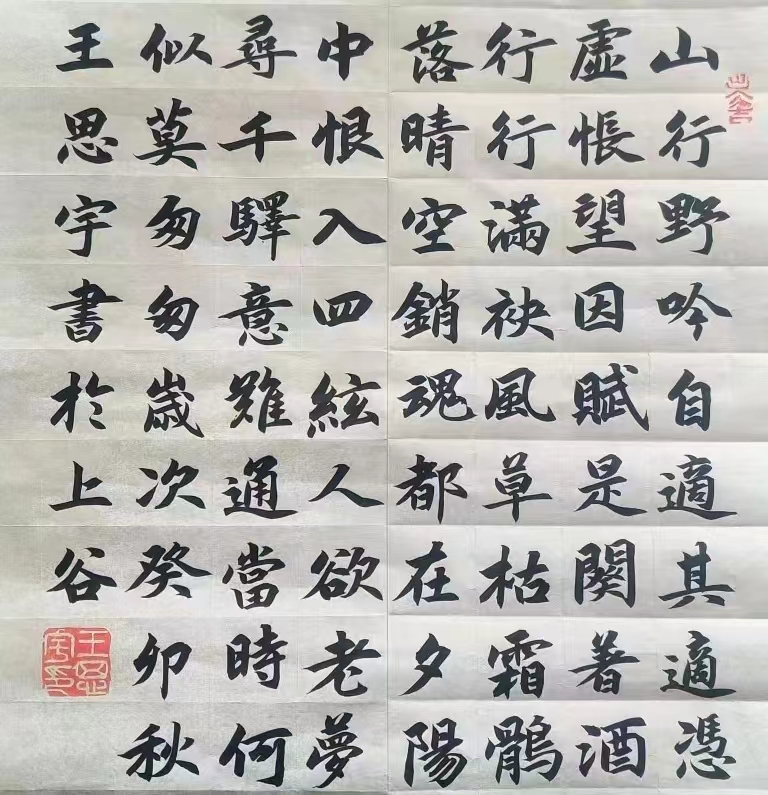 山行野吟自適其適憑
虛悵望因賦是闋著酒
行行滿袂風草枯霜鶻
落晴空銷魂都在夕陽
中恨入四絃人欲老夢
尋千驛意難通當時何
似莫匆匆歲次癸卯秋
王思宇書於上谷
王思宇印